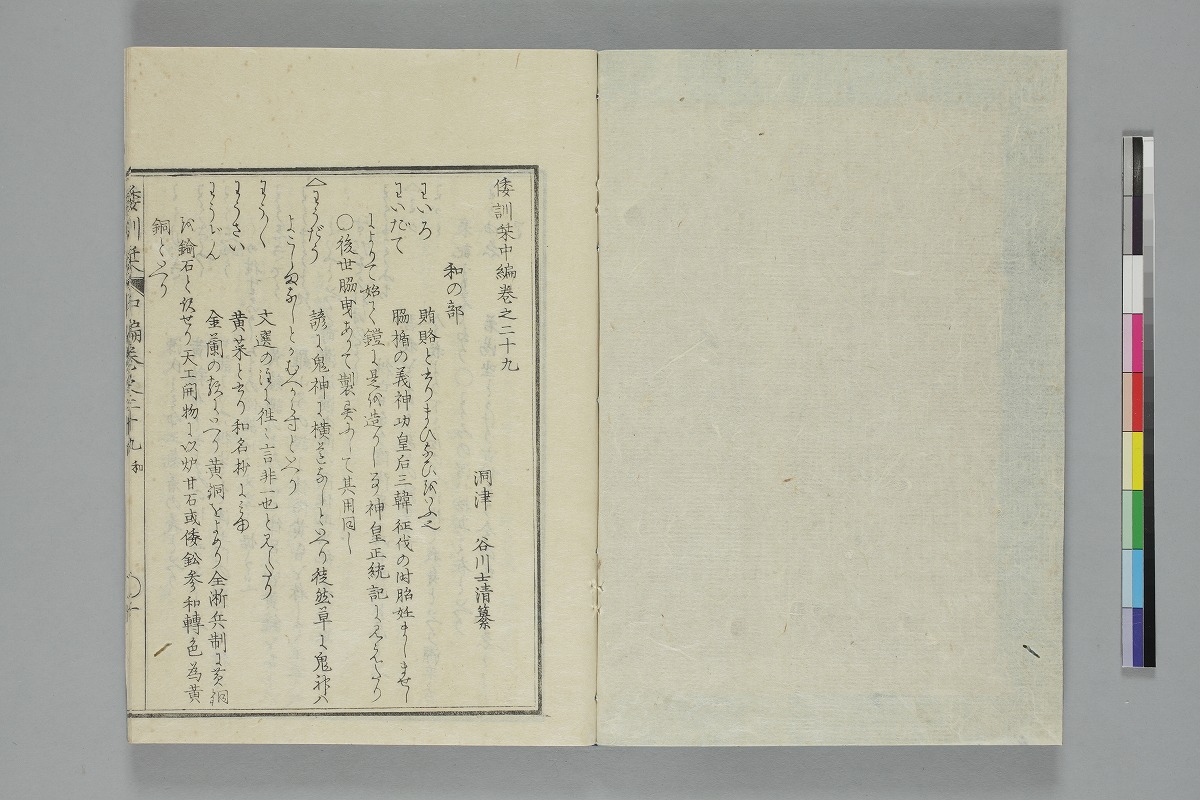 倭訓栞中編巻之二十九
洞津 谷川士清纂
和の部
わいろ 賄賂と云りまひなひをいふ也
わいだて 脇楯の義神功皇后三韓征伐の時胎妊ましませし
によりて始て鎧に是を造りし事神皇正統記に見えたり
〇後世脇曳ありて製異にして其用同し
わうだう 諺に鬼神に横道なしといへり徒然草に鬼神ハ
よこしまなしとかむへからすといへり
わう〱 文選の注に徃〻言非一也と見えたり
わうさい 黄菜と云り和名抄に見ゆ
わうどん 金蘭の
黄銅をよめり全浙兵制に黄銅
を鍮石と
せり天工開物に以炉甘石或倭鉛参和轉色為黄
銅といへり
倭訓栞 中編巻之二十九 和